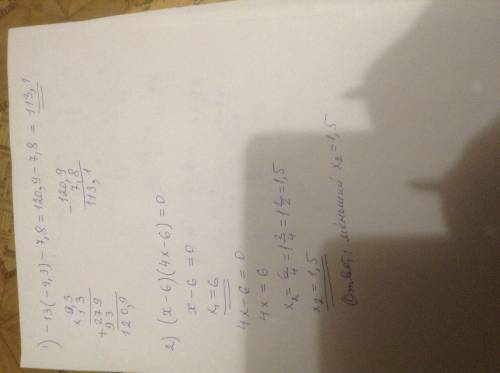 1) -13(-9,3)-7,8=120,9-7,8=113,1
9,3
x 1,3
+279
93
120,9
-120,9
7,8
113,1
2) (x-6)(4x-6)=0
x-6=0
x₁=6
4x-6=0
4x=6
x₂=6/4=1 2/4=1 1/2=1,5
x₂=1,5
Ответ: меньший x₂=1,5